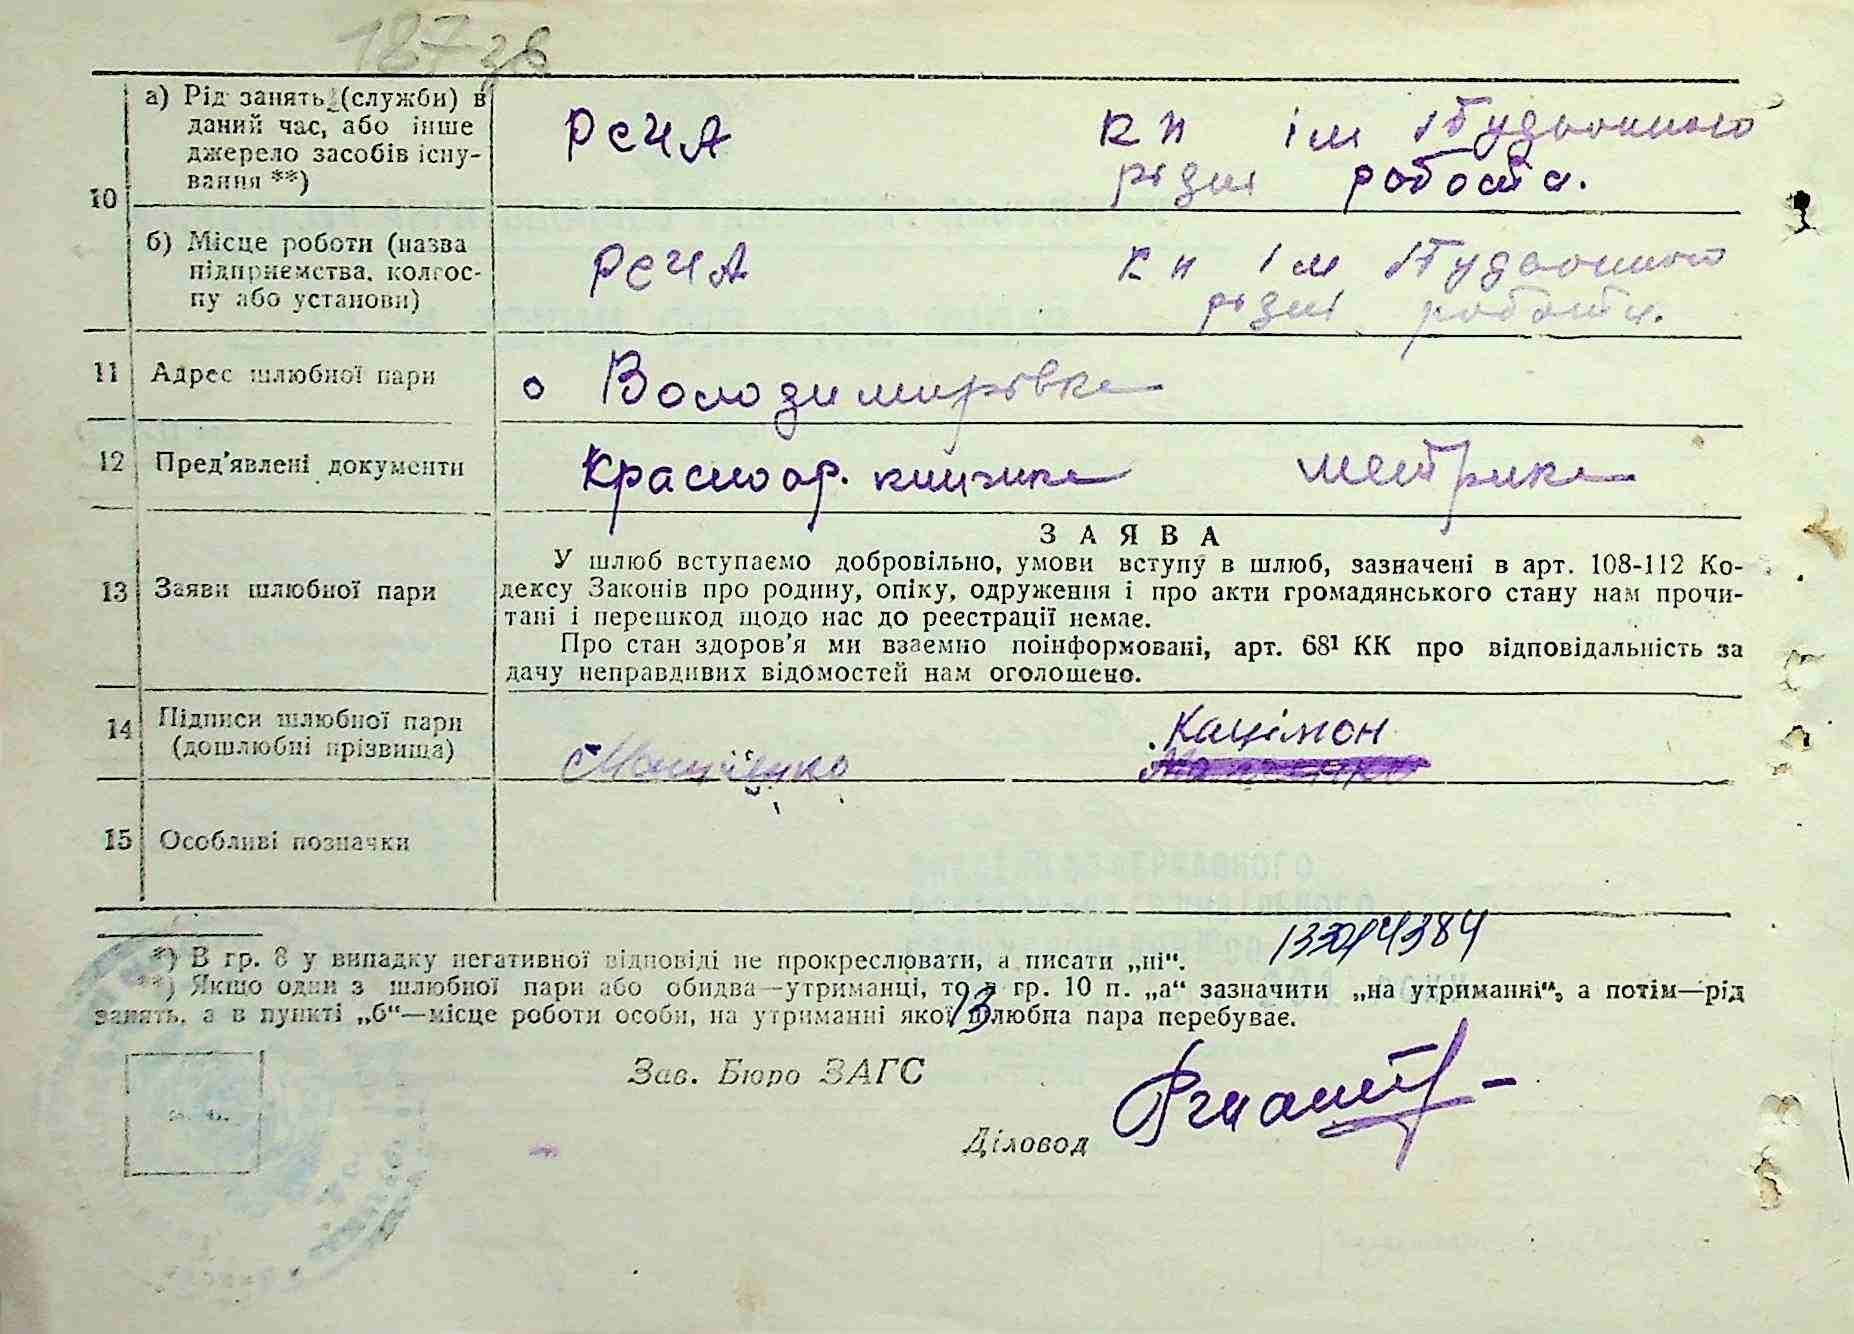 187 зв
10
а) Рід занять (служби) в
даний час, або інше
джерело засобів існу-
вання **)
РСЧА
кп ім Будьонного
різні робота.
б) Місце роботи (назва
підприємства, колгос-
пу або установи)
РСЧА
кп ім Будьонного
різні робота.
11 Адрес шлюбної пари
с Володимирівка
12 Пред'явлені документи
Красноар. книжка метрика
13 Заяви шлюбної пари
ЗАЯВА
У шлюб вступаємо добровільно, умови вступу в шлюб, зазначені в арт. 108-112 Ко-
дексу Законів про родину, опіку, одруження і про акти громадянського стану нам прочи-
тані і перешкод щодо нас до реєстрації немає.
Про стан здоров'я ми взаємно поінформовані, арт. 68¹ КК про відповідальність за
дачу неправдивих відомостей нам оголошено.
14 Підписи шлюбної пари
(дошлюбні прізвища)
Кацімон
15 Особливі позначки
*) В гр. 8 у випадку негативної відповіді не прокреслювати, а писати „ні“.
**) Якщо один з шлюбної пари або обидва—утриманці, то в гр. 10 п. „а“ зазначити „на утриманні“, а потім—рід
занять, а в пункті „б“—місце роботи особи, на утриманні якої шлюбна пара перебуває.
13
Зав. Бюро ЗАГС
Діловод